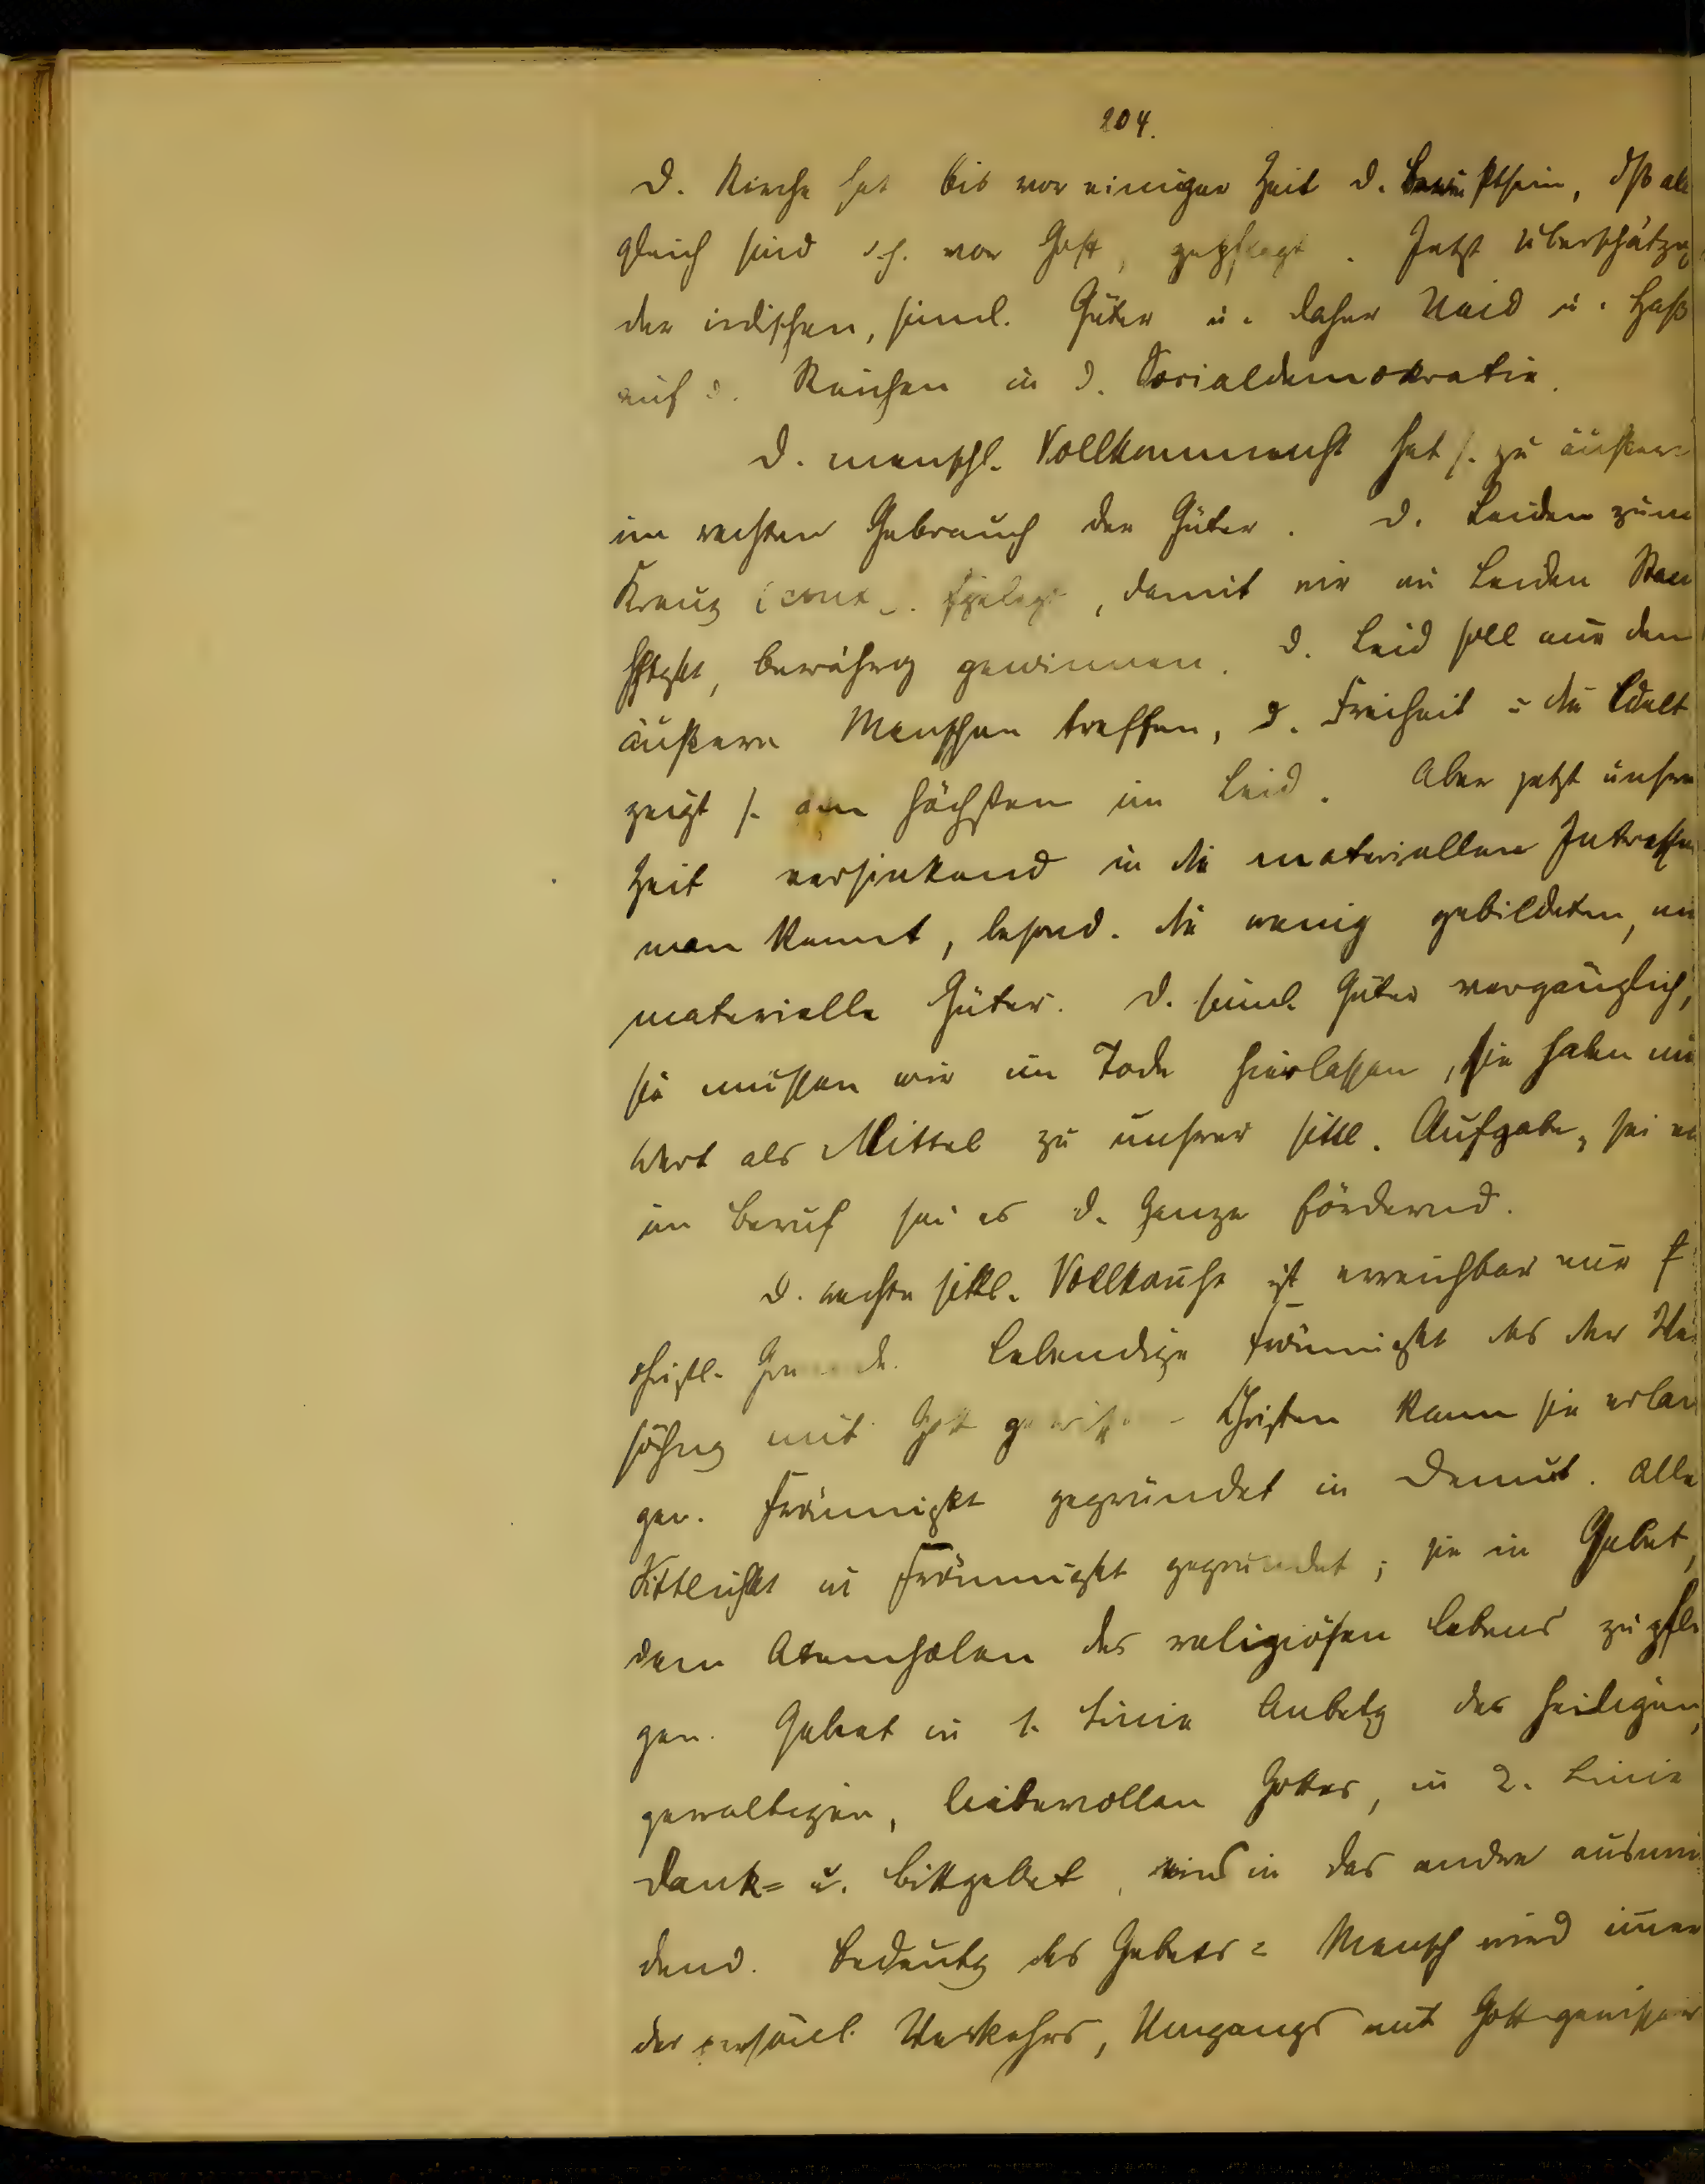 204.
D. Kirche hat bis vor einiger Zeit d. Bewußtsein, dß alle
gleich sind d.h. vor Gott, gepflegt. Jetzt Überschätzg
der irdischen, sinnl. Güter u. daher Neid u. Haß
auf d. Reichen in d. Socialdemokratie.
D. menschl. Vollkommenht hat s. zu äußern
im rechten Gebrauch der Güter. D. Leiden zum
Kreuz, damit wir im Leiden
bewährg gewinnen. D. Leid soll nur den
äußern Menschen treffen, d. Freiheit die
zeigt s. am höchsten im Leid. Aber jetzt unsre
Zeit versinkend in die materiellen Interessen
man kennt, besond. die wenig gebildeten, nu
materielle Güter. D. sinnl. Güter vergänglich,
sie müssen wir im Tode hierlassen, sie haben nu
Wert als Mittel zu unsrer sittl. Aufgabe, sei es
im Beruf sei es d. Ganze fördernd.
D. rechte sittl. Vollkommht ist erreichbar nur f
christl. Lebendige Frömmigkt des der Ve
söhng mit Gott gewissen Christen kann sie erlan
gen. Frömmigkt gegründet in Demut. Alle
Sittlichkt in Frömmigkt gegründet; sie in Gebet,
dem Atemholen des religiösen Lebens zu pfle
gen. Gebet in 1. Linie Anbetg des heiligen,
gewaltigen, liebevollen Gottes, in 2. Linie
Dank= u. Bittgebet, eins in das andre ausmün
dend. Bedeutg des Gebets = Mensch wird immer
des persönl. Verkehrs, Umgangs mit Gott gewisser